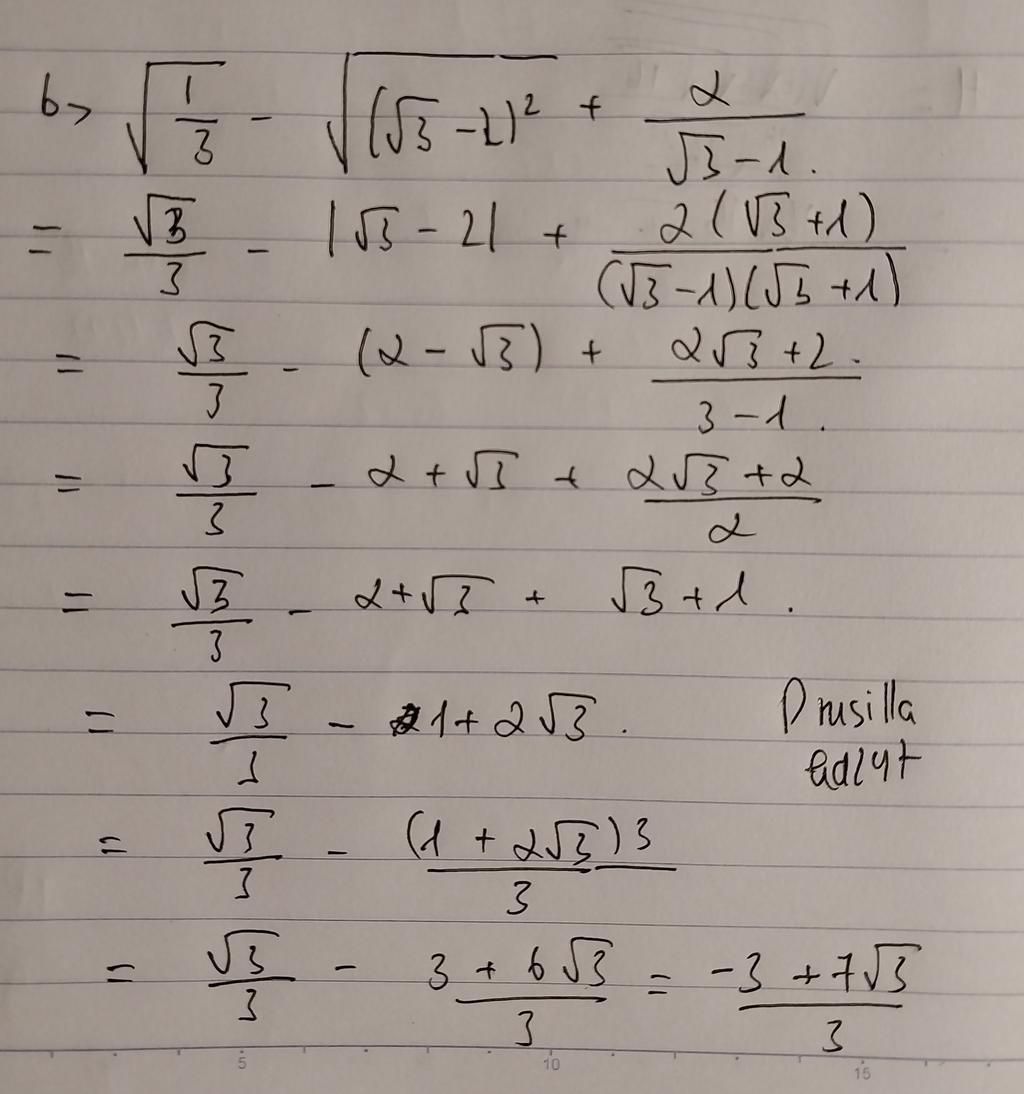 b> √(1/3) - √((√3 - 2)²) + 2/(√3 - 1).
= √3/3 - |√3 - 2| + 2(√3 + 1)/((√3 - 1)(√3 + 1))
= √3/3 - (2 - √3) + (2√3 + 2.)/(3 - 1.)
= √3/3 - 2 + √3 + (2√3 + 2)/2
= √3/3 - 2 + √3 + √3 + 1.
= √3/3 - 1 + 2√3.
Drusilla
= √3/3 - (1 + 2√3)3/3
= √3/3 - (3 + 6√3)/3 = (-3 + 7√3)/3
5 10 15